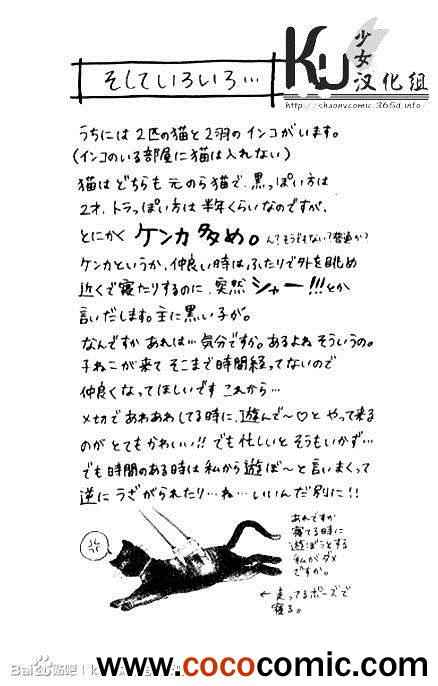 そしていろいろ…
KU
少女
汉化组
http://shaonvcomic.365d.info
うちには2匹の猫と2羽のインコがいます。
(インコのいる部屋に猫は入れない)
猫はどちらも元のら猫で、黒っぽい方は
2才、トラっぽい方は半年くらいなのですが、
とにかくケンカ多め。
ケンカというか、仲良い時はふたりで外を眺め
近くで寝たりするのに、突然シャー!!!とか
言いだします。主に黒い子が。
なんですかあれは…気分ですか。あるよねそういうの。
子ねこが来てそこまで時間経ってないので
仲良くなってほしいですこれから…
〆切であわあわしてる時に、遊んで〜♡とやって来る
のがとてもかわいい!!でも忙しいとそうもいかず…
でも時間のある時は私から遊ぼ〜と言いまくって
逆にうざがられたり…ね…いいんだ別に!!
あれですか
寝てる時に
遊ぼうとする
私がダメ
ですか。
←走ってるポーズで
寝る。
Bai 贴吧
www.cococomic.com